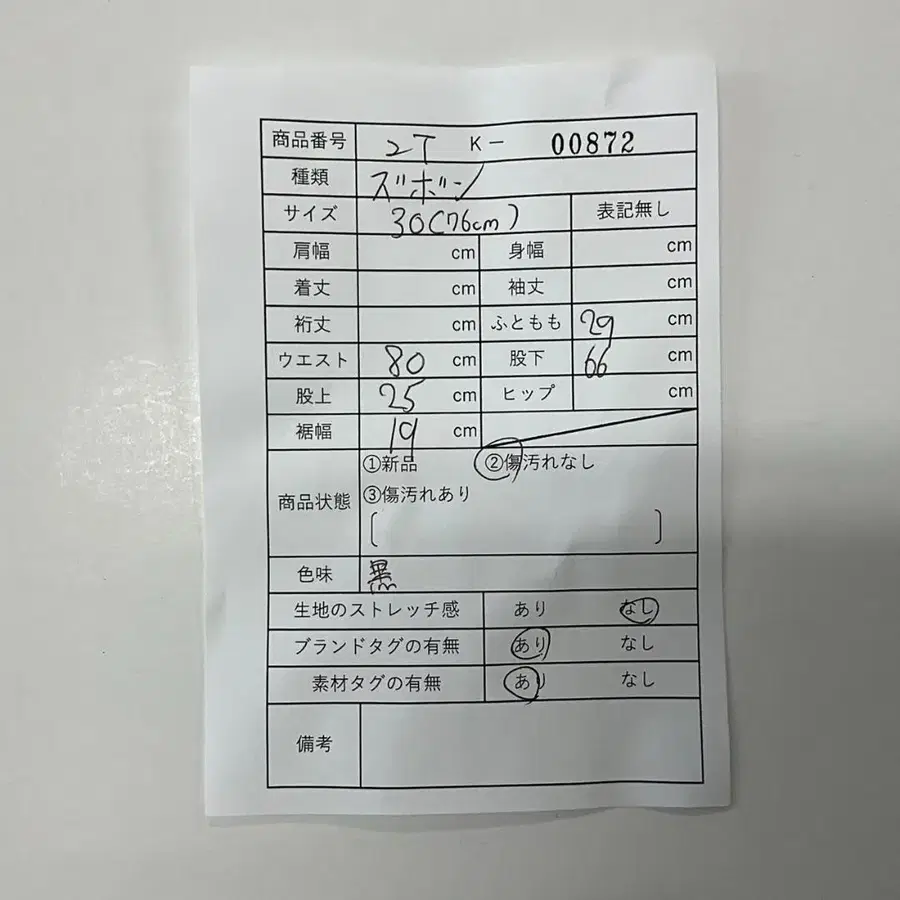 商品番号 2T K- 00872
種類 ズボン
サイズ 30(76cm) 表記無し
肩幅 cm 身幅 cm
着丈 cm 袖丈 cm
裄丈 cm ふともも 29 cm
ウエスト 80 cm 股下 66 cm
股上 25 cm ヒップ cm
裾幅 19 cm
①新品 ②傷汚れなし
商品状態 ③傷汚れあり
[ ]
色味 黒
生地のストレッチ感 あり なし
ブランドタグの有無 あり なし
素材タグの有無 あり なし
備考